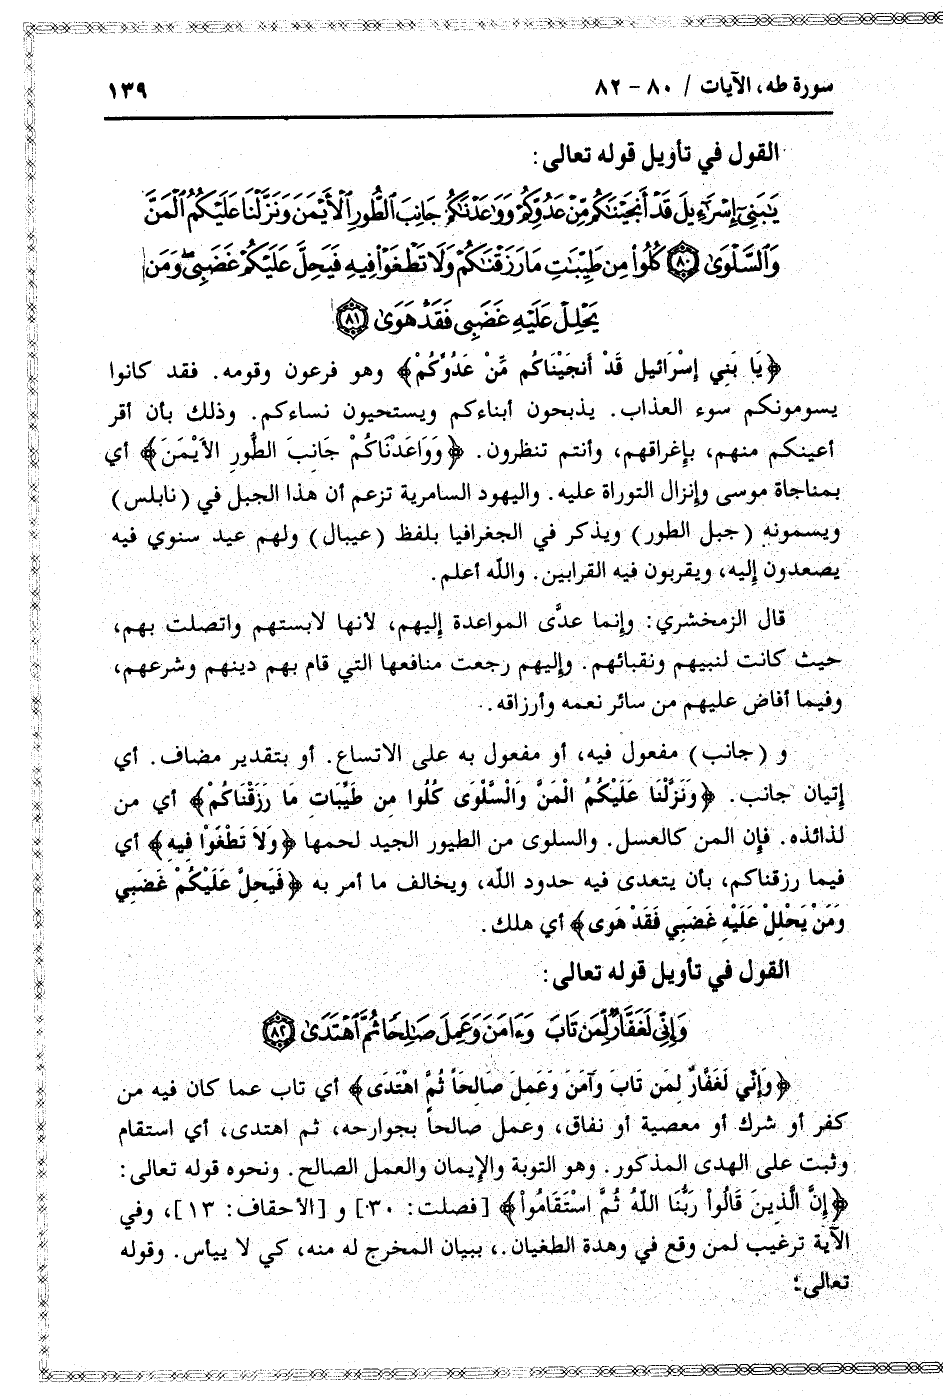 سورة طه، الآيات / ٨٠ - ٨٢
١٣٩
القول في تأويل قوله تعالى:
يَٰبَنِىٓ إِسْرَٰٓءِيلَ قَدْ أَنجَيْنَٰكُم مِّنْ عَدُوِّكُمْ وَوَٰعَدْنَٰكُمْ جَانِبَ ٱلطُّورِ ٱلْأَيْمَنَ وَنَزَّلْنَا عَلَيْكُمُ ٱلْمَنَّ
وَٱلسَّلْوَىٰ ٨٠ كُلُوا۟ مِن طَيِّبَٰتِ مَا رَزَقْنَٰكُمْ وَلَا تَطْغَوْا۟ فِيهِ فَيَحِلَّ عَلَيْكُمْ غَضَبِى ۖ وَمَن
يَحْلِلْ عَلَيْهِ غَضَبِى فَقَدْ هَوَىٰ ٨١
﴿يَا بَنِي إسْرَائيل قَدْ أَنجَيْنَاكُم مِّنْ عَدُوِّكُمْ﴾ وهو فرعون وقومه. فقد كانوا
يسومونكم سوء العذاب. يذبحون أبناءكم ويستحيون نساءكم. وذلك بأن أقر
أعينكم منهم، بإغراقهم، وأنتم تنظرون. ﴿وَوَاعَدْنَاكُمْ جَانِبَ الطُّورِ الأَيْمَنَ﴾ أي
بمناجاة موسى وإنزال التوراة عليه. واليهود السامرية تزعم أن هذا الجبل في (نابلس)
ويسمونه (جبل الطور) ويذكر في الجغرافيا بلفظ (عيبال) ولهم عيد سنوي فيه
يصعدون إليه، ويقربون فيه القرابين. واللّه أعلم.
قال الزمخشري: وإنما عدَّى المواعدة إليهم، لأنها لابستهم واتصلت بهم،
حيث كانت لنبيهم ونقبائهم. وإليهم رجعت منافعها التي قام بهم دينهم وشرعهم،
وفيما أفاض عليهم من سائر نعمه وأرزاقه.
و (جانب) مفعول فيه، أو مفعول به على الاتساع. أو بتقدير مضاف. أي
إتيان جانب. ﴿وَنَزَّلْنَا عَلَيْكُمُ الْمَنَّ وَالْسَّلْوَى كُلُوا مِن طَيِّبَاتِ مَا رَزَقْنَاكُمْ﴾ أي من
لذائذه. فإن المن كالعسل. والسلوى من الطيور الجيد لحمها ﴿وَلاَ تَطْغَوْا فِيهِ﴾ أي
فيما رزقناكم، بأن يتعدى فيه حدود اللّه، ويخالف ما أمر به ﴿فَيَحِلَّ عَلَيْكُمْ غَضَبِي
وَمَنْ يَحْلِلْ عَلَيْهِ غَضَبِي فَقَدْ هَوَى﴾ أي هلك.
القول في تأويل قوله تعالى:
وَإِنِّى لَغَفَّارٌ لِّمَن تَابَ وَءَامَنَ وَعَمِلَ صَٰلِحًا ثُمَّ ٱهْتَدَىٰ ٨٢
﴿وَإِنِّي لَغَفَّارٌ لِمَن تَابَ وَآمَنَ وَعَمِلَ صَالِحَاً ثُمَّ اهْتَدَى﴾ أي تاب عما كان فيه من
كفر أو شرك أو معصية أو نفاق، وعمل صالحاً بجوارحه، ثم اهتدى، أي استقام
وثبت على الهدى المذكور. وهو التوبة والإيمان والعمل الصالح. ونحوه قوله تعالى:
﴿إِنَّ الَّذِينَ قَالُواْ رَبُّنَا اللّهُ ثُمَّ اسْتَقَامُواْ﴾ [فصلت: ٣٠] و [الأحقاف: ١٣]، وفي
الآية ترغيب لمن وقع في وهدة الطغيان.، ببيان المخرج له منه، كي لا ييأس. وقوله
تعالى: